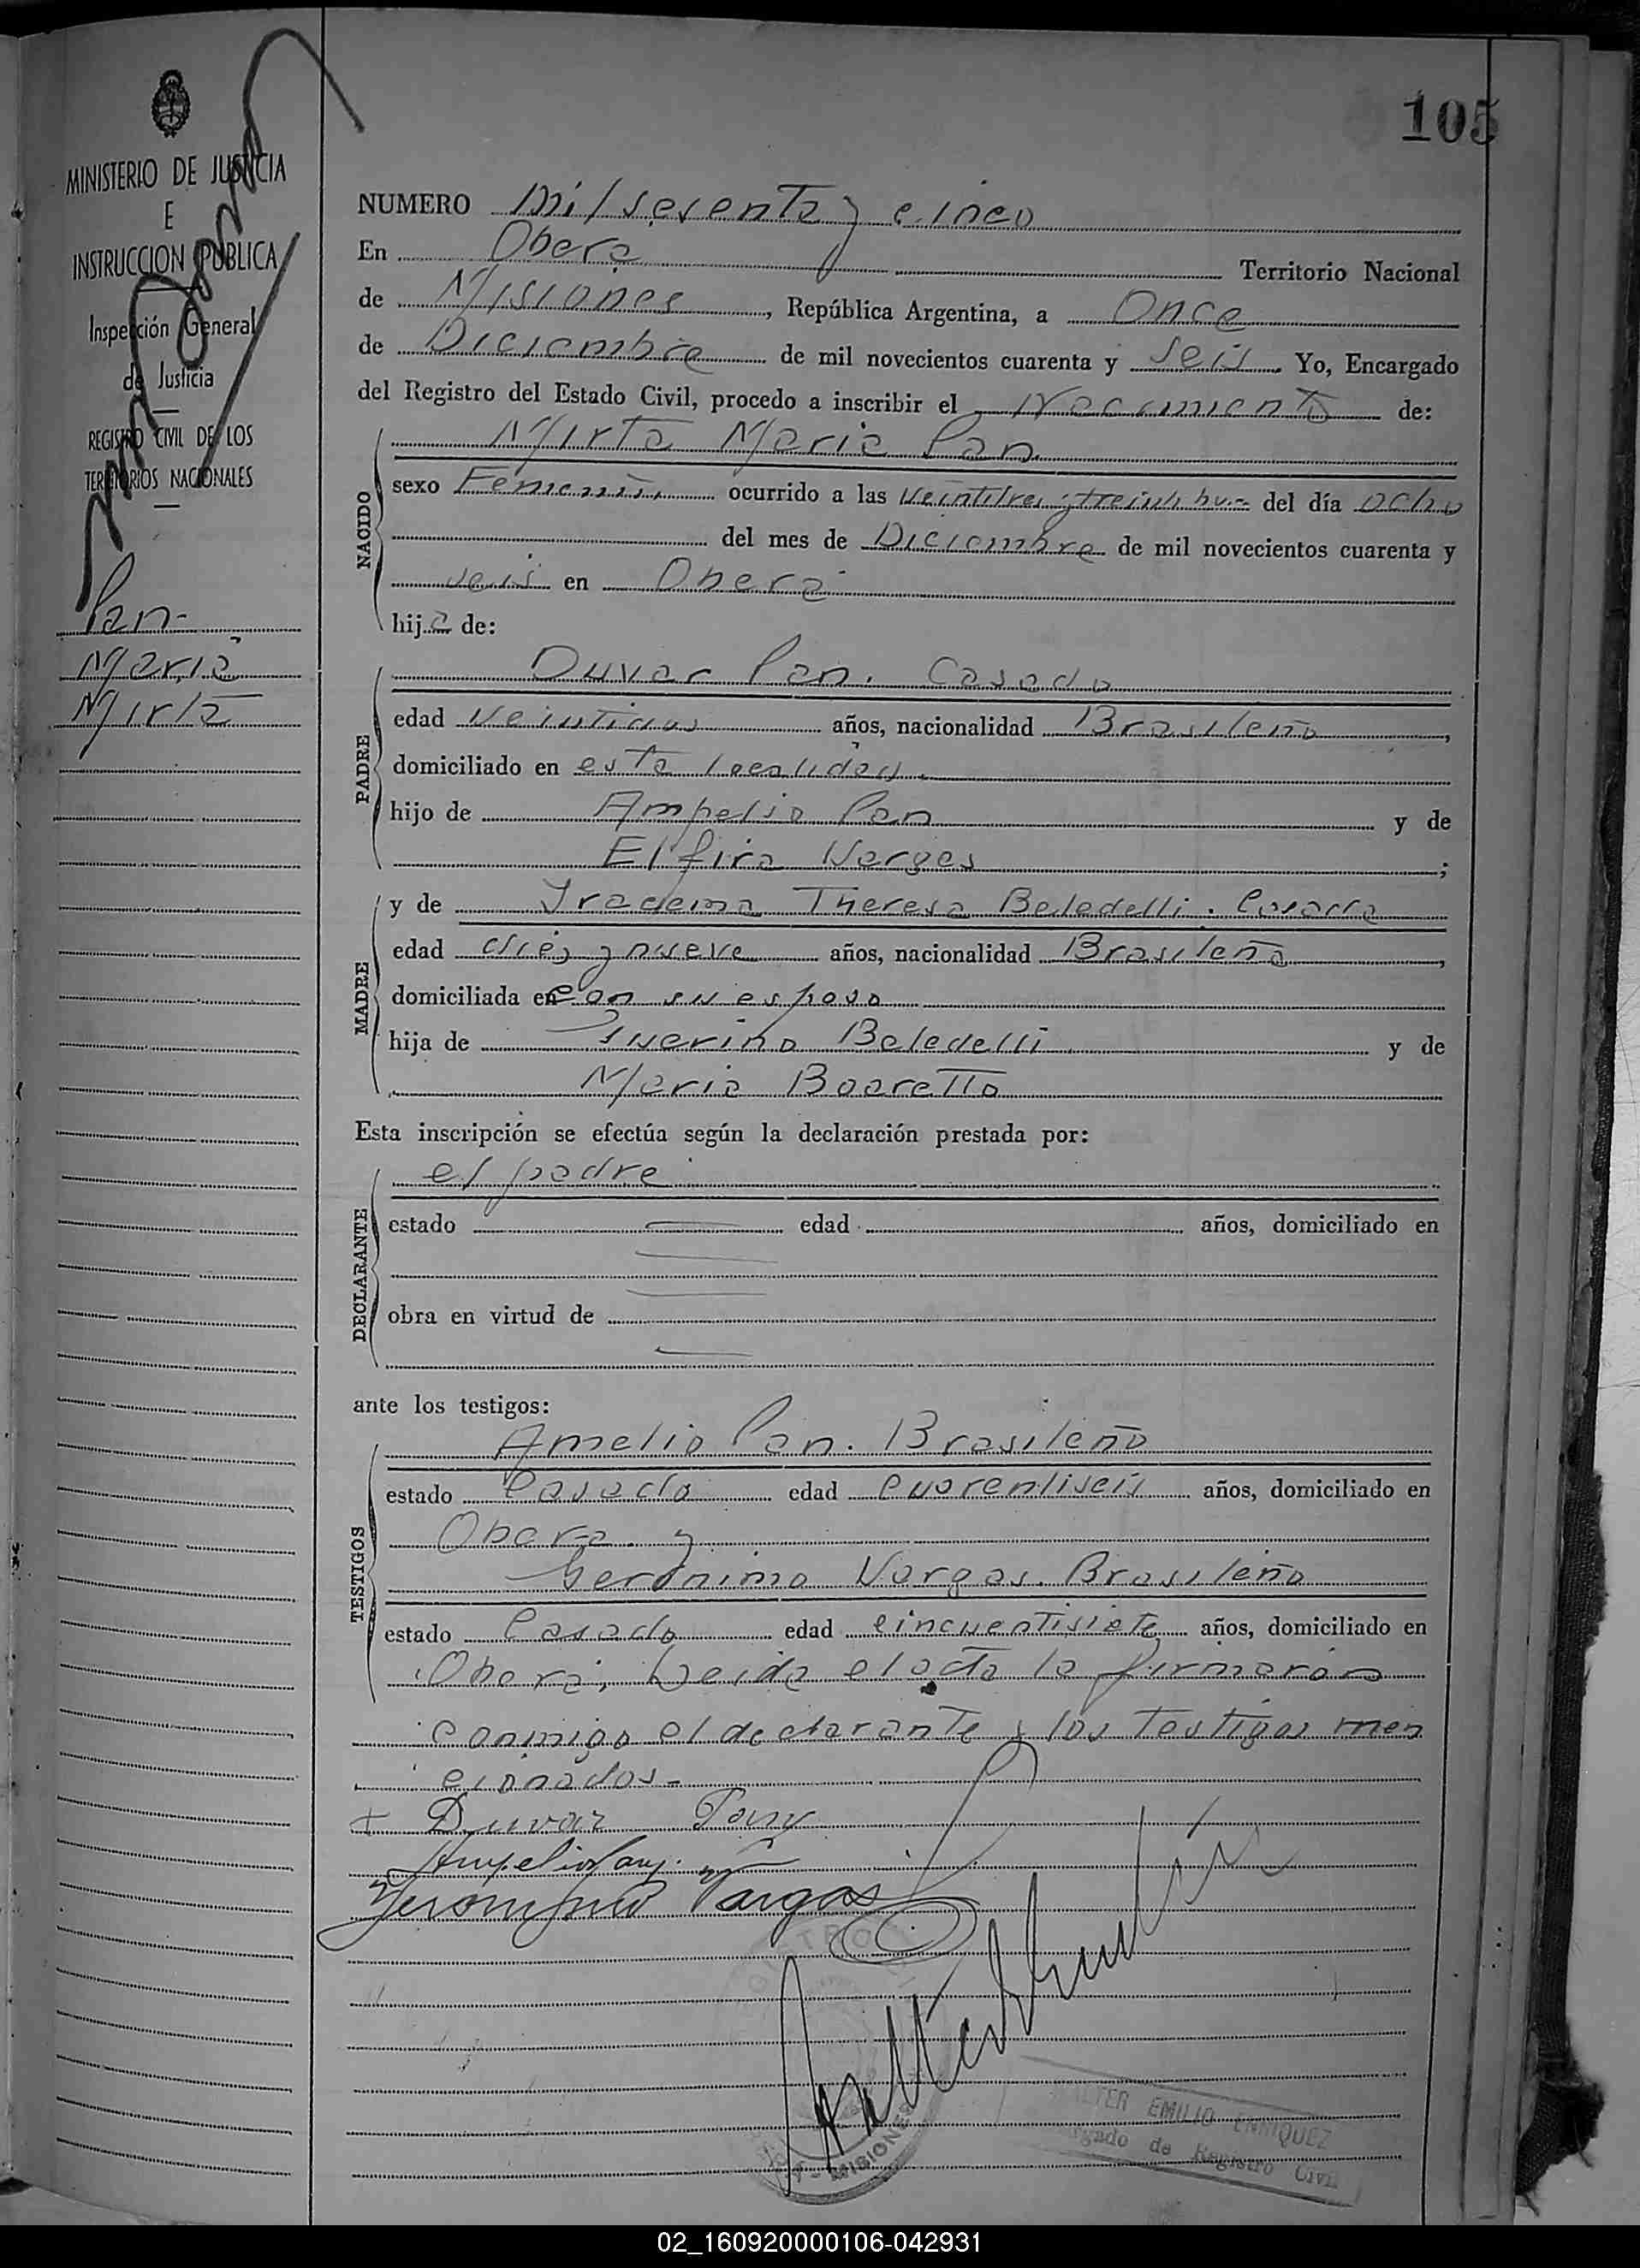 105
MINISTERIO DE JUSTICIA
E
INSTRUCCION PUBLICA
Inspección General
de Justicia
REGISTRO CIVIL DE LOS
TERRITORIOS NACIONALES
Pan
Maria
Mirta
NUMERO mil sesenta y cinco
En Obera Territorio Nacional
de Misiones, República Argentina, a Once
de Diciembre de mil novecientos cuarenta y seis. Yo, Encargado
del Registro del Estado Civil, procedo a inscribir el Nacimiento de:
NACIDO
Mirta Maria Pan
sexo Femenino ocurrido a las veintitres y treinta hs. del día ocho
del mes de Diciembre de mil novecientos cuarenta y
seis en Obera
hija de:
PADRE
Duvar Pan. Casado
edad veintidos años, nacionalidad Brasileño,
domiciliado en esta localidad.
hijo de Ampelio Pan y de
Elfira Vargas;
MADRE
y de Yradema Theresa Beledelli. Casada
edad diez y nueve años, nacionalidad Brasileña,
domiciliada en con su esposo
hija de Guerino Beledelli y de
Maria Boaretto
Esta inscripción se efectúa según la declaración prestada por:
DECLARANTE
el padre
estado edad años, domiciliado en
obra en virtud de
ante los testigos:
TESTIGOS
Amelio Pan. Brasileño
estado Casado edad cuarentiseis años, domiciliado en
Obera y
Geronimo Vargas. Brasileño
estado Casado edad cincuentisiete años, domiciliado en
Obera; Leida el acta la firmaron
conmigo el declarante y los testigos men
cionados-
Duvar Pan
Ampelio Pan
Jeronymo Vargas
MISIONES
WALTER EMILIO ENRIQUEZ
de Registro Civil
02_160920000106-042931